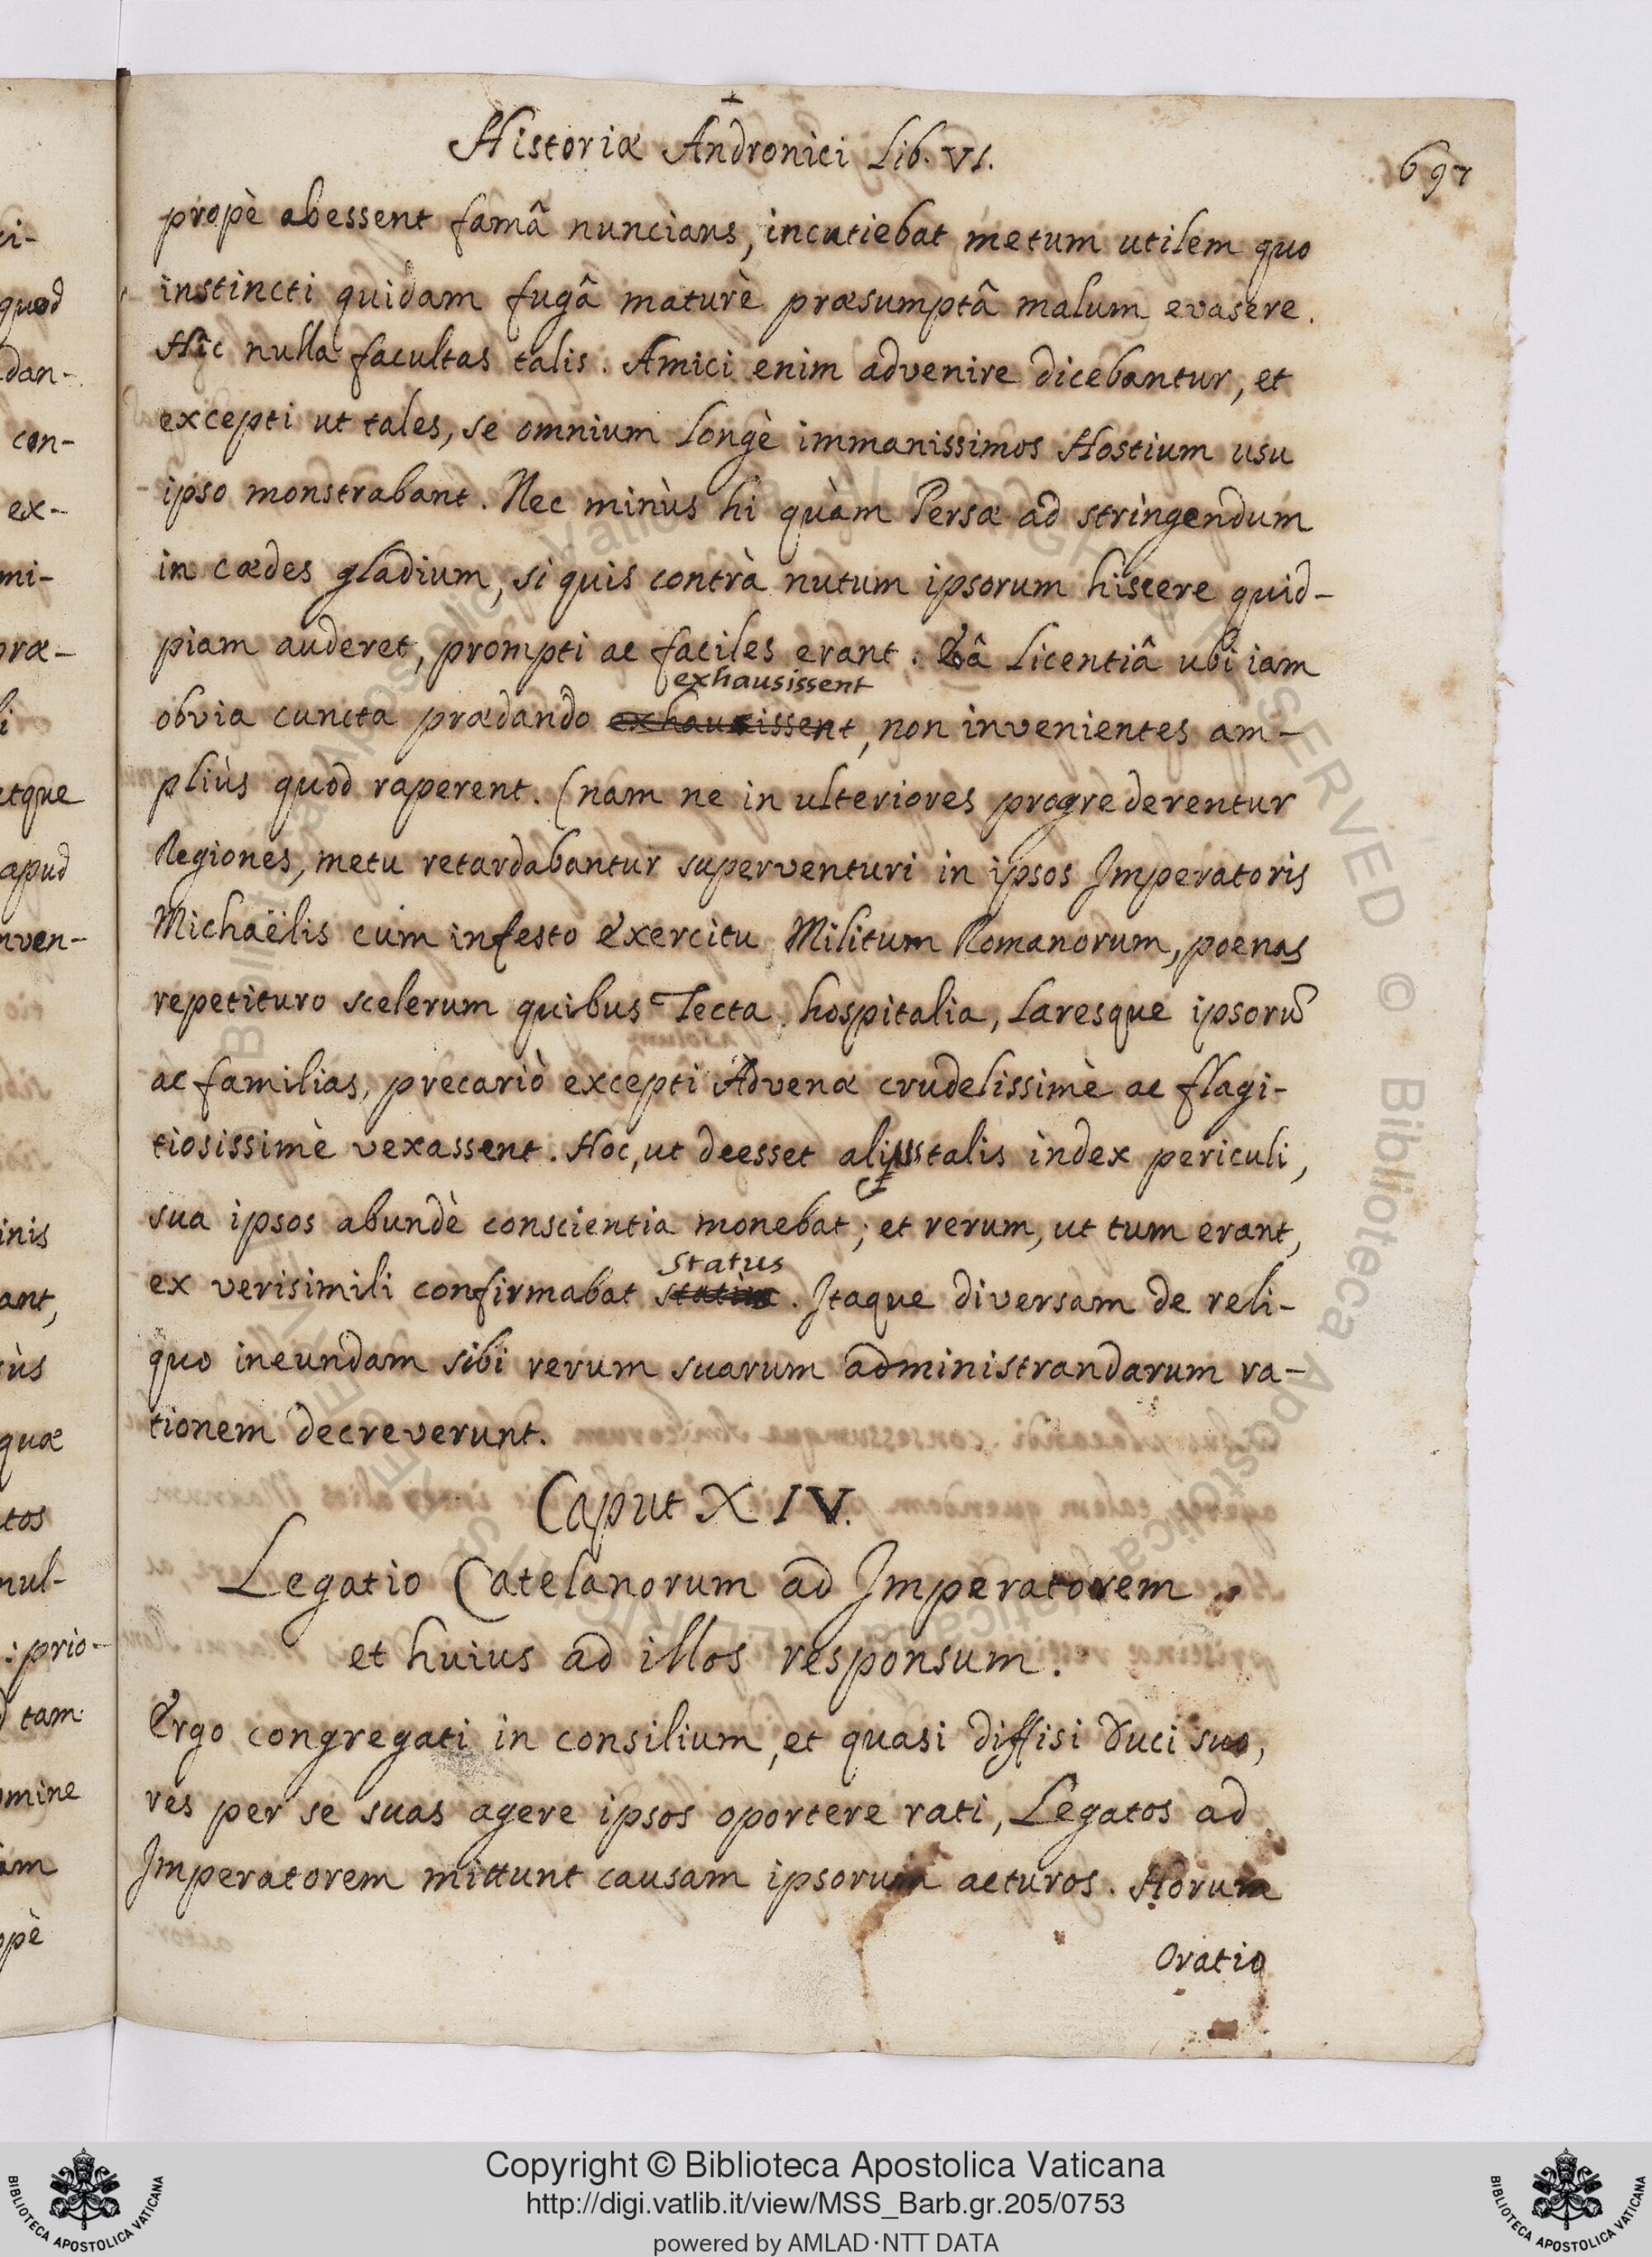 Historiæ Andronici Lib. VI.
697
propè abessent famâ nuncians, incutiebat metum utilem quo
instincti quidam fugâ maturè præsumptâ malum evasere.
Hîc nulla facultas talis. Amici enim advenire dicebantur, et
excepti ut tales, se omnium longè immanissimos Hostium usu
ipso monstrabant. Nec minùs hi quàm Persæ ad stringendum
in cædes gladium, si quis contrà nutum ipsorum hiscere quid-
piam auderet, prompti ac faciles erant. Eâ Licentiâ ubi iam
exhausissent
obvia cuncta prædando exhausissent, non invenientes am-
pliùs quod raperent. (nam ne in ulteriores progrederentur
Regiones, metu retardabantur superventuri in ipsos Imperatoris
Michaëlis cum infesto Exercitu Militum Romanorum, poenas
repetituro scelerum quibus Tecta hospitalia, Laresque ipsorũ
ac familias, precariò excepti Advenæ crudelissimè ac flagi-
tiosissimè vexassent. Hoc, ut deesset alius talis index periculi,
sua ipsos abundè conscientia monebat; et rerum, ut tum erant,
status
ex verisimili confirmabat. Itaque diversam de reli-
quo ineundam sibi rerum suarum administrandarum ra-
tionem decreverunt.
Caput XIV.
Legatio Catelanorum ad Imperatorem
et huius ad illos responsum.
Ergo congregati in consilium, et quasi diffisi Duci suo,
res per se suas agere ipsos oportere rati, Legatos ad
Imperatorem mittunt causam ipsorum acturos. Horum
Oratio
ci-
quod
dan-
con-
ex-
mi-
præ-
li
atque
apud
nven-
inis
ant,
sùs
quæ
tos
nul-
: prio-
tam
omine
iam
opè
Copyright © Biblioteca Apostolica Vaticana
http://digi.vatlib.it/view/MSS_Barb.gr.205/0753
powered by AMLAD·NTT DATA
BIBLIOTECA APOSTOLICA VATICANA
BIBLIOTECA APOSTOLICA VATICANA